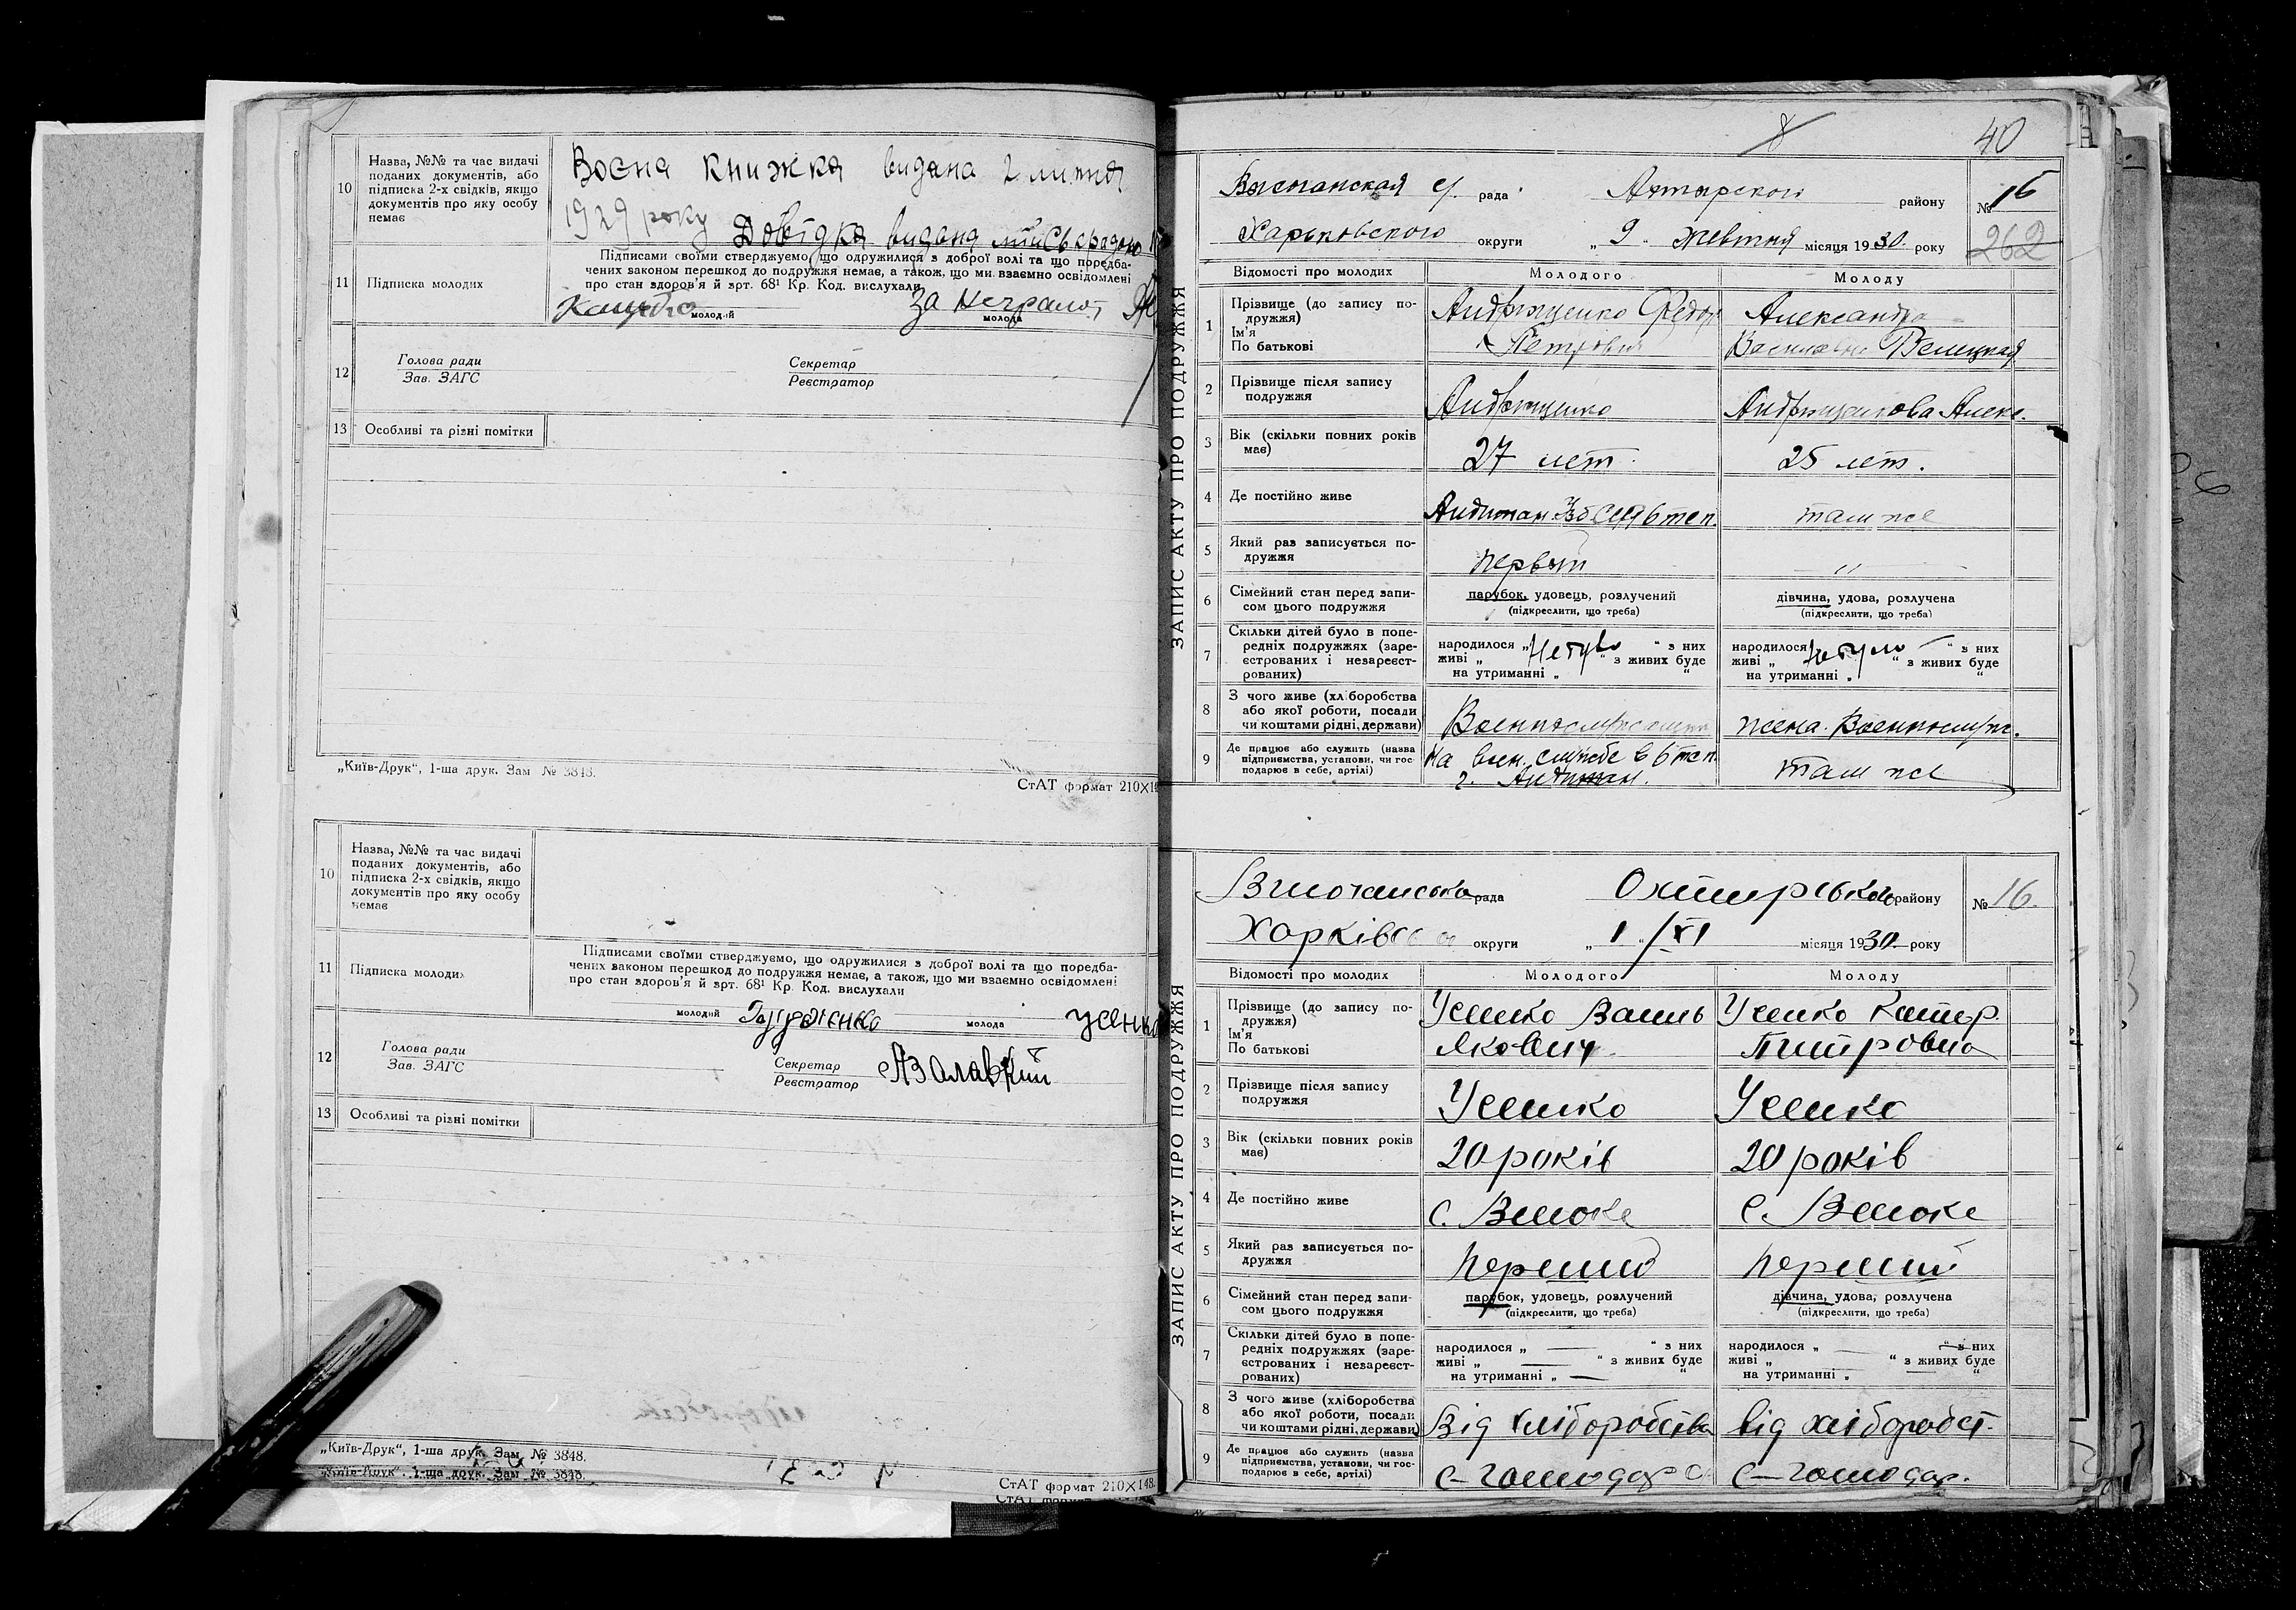 10
Назва, №№ та час видачі
поданих документів, або
підписка 2-х свідків, якщо
документів про яку особу
немає
Воєна книжка видана 2 липня
1929 року Довідка видана
11
Підписка молодих
Підписами своїми стверджуємо, що одружилися з доброї волі та що поредба-
чених законом перешкод до подружжя немає, а також, що ми взаємно освідомлені
про стан здоров'я й арт. 68¹ Кр. Код. вислухали
молодий
за неграмот
молода
12
Голова ради
Зав. ЗАГС
Секретар
Реєстратор
13
Особливі та різні помітки
„Київ-Друк“, 1-ша друк. Зам № 3848.
СтАТ формат 210×14
10
Назва, №№ та час видачі
поданих документів, або
підписка 2-х свідків, якщо
документів про яку особу
немає
11
Підписка молодих
Підписами своїми стверджуємо, що одружилися з доброї волі та що поредба-
чених законом перешкод до подружжя немає, а також, що ми взаємно освідомлені
про стан здоров'я й арт. 68¹ Кр. Код. вислухали
молодий
молода Усенко
12
Голова ради
Зав. ЗАГС
Секретар
Реєстратор
13
Особливі та різні помітки
„Київ-Друк“, 1-ша друк. Зам № 3848.
„Київ-Друк“, 1-ша друк. Зам № 3848.
СтАТ формат 210×148.
40
ЗАПИС АКТУ ПРО ПОДРУЖЖЯ
с/ рада Ахтырского району № 15
Харьковского округи „ 9 „ жевтня місяця 1930 року 262
Відомості про молодих Молодого Молоду
1
Прізвище (до запису по-
дружжя)
Ім'я
По батькові
Андрющенко Федор
Петрович
Александра
Васильевна Велецкая
2
Прізвище після запису
подружжя
Андрющенко
Андрющенкова Алекс.
3
Вік (скільки повних років
має)
27 лет.
25 лет.
4
Де постійно живе
Андижан 6 теп.
там же
5
Який раз записується по-
дружжя
первый
„
6
Сімейний стан перед запи-
сом цього подружжя
парубок, удовець, розлучений
(підкреслити, що треба)
дівчина, удова, розлучена
(підкреслити, що треба)
7
Скільки дітей було в попе-
редніх подружжях (заре-
єстрованих і незареєст-
рованих)
народилося „ Небуло “ з них
живі „ “ з живих буде
на утриманні „ “
народилося Небуло “ з них
живі „ “ з живих буде
на утриманні „ “
8
З чого живе (хліборобства
або якої роботи, посади
чи коштами рідні, держави)
Военнослужащий
жена Военнослуж.
9
Де працює або служить (назва
підприємства, установи, чи гос-
подарює в себе, артілі)
На воен. службе в 6 теп.
г. Андижан.
там же
ЗАПИС АКТУ ПРО ПОДРУЖЖЯ
рада Охтирського району № 16.
Харківсько округи „ 1 „ / XI місяця 1930 року
Відомості про молодих Молодого Молоду
1
Прізвище (до запису по-
дружжя)
Ім'я
По батькові
Усенко Василь
Якович
Усенко Катер.
Питровна
2
Прізвище після запису
подружжя
Усенко
Усенко
3
Вік (скільки повних років
має)
20 років
20 років
4
Де постійно живе
с. Високе
с. Високе
5
Який раз записується по-
дружжя
перший
перший
6
Сімейний стан перед запи-
сом цього подружжя
парубок, удовець, розлучений
(підкреслити, що треба)
дівчина, удова, розлучена
(підкреслити, що треба)
7
Скільки дітей було в попе-
редніх подружжях (заре-
єстрованих і незареєст-
рованих)
народилося „ — “ з них
живі „ — “ з живих буде
на утриманні „ — “
народилося „ — “ з них
живі „ “ з живих буде
на утриманні „ — “
8
З чого живе (хліборобства
або якої роботи, посади
чи коштами рідні, держави)
Від хліборобства
від хліборобст.
9
Де працює або служить (назва
підприємства, установи, чи гос-
подарює в себе, артілі)
с-господар с
с-господар.